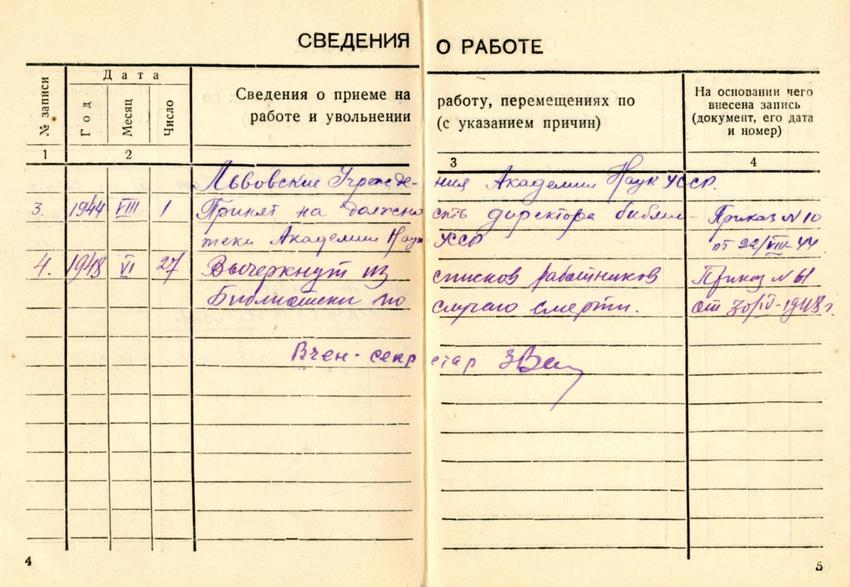 СВЕДЕНИЯ О РАБОТЕ
№ записи
Дата
Год
Месяц
Число
Сведения о приеме на работу, перемещениях по
работе и увольнении (с указанием причин)
На основании чего
внесена запись
(документ, его дата
и номер)
1 2 3 4
Львовские Учрежде- ния Академии Наук УССР.
3. 1944 VIII 1 Принят на должно сть директора библио- Приказ № 10
теки Академии Наук УССР от 22/VIII-44
4. 1948 VI 27 Вычеркнут из списков работников Приказ № 61
Библиотеки по случаю смерти. от 30/IV-1948 г.
Вчен-секр етар
4
5